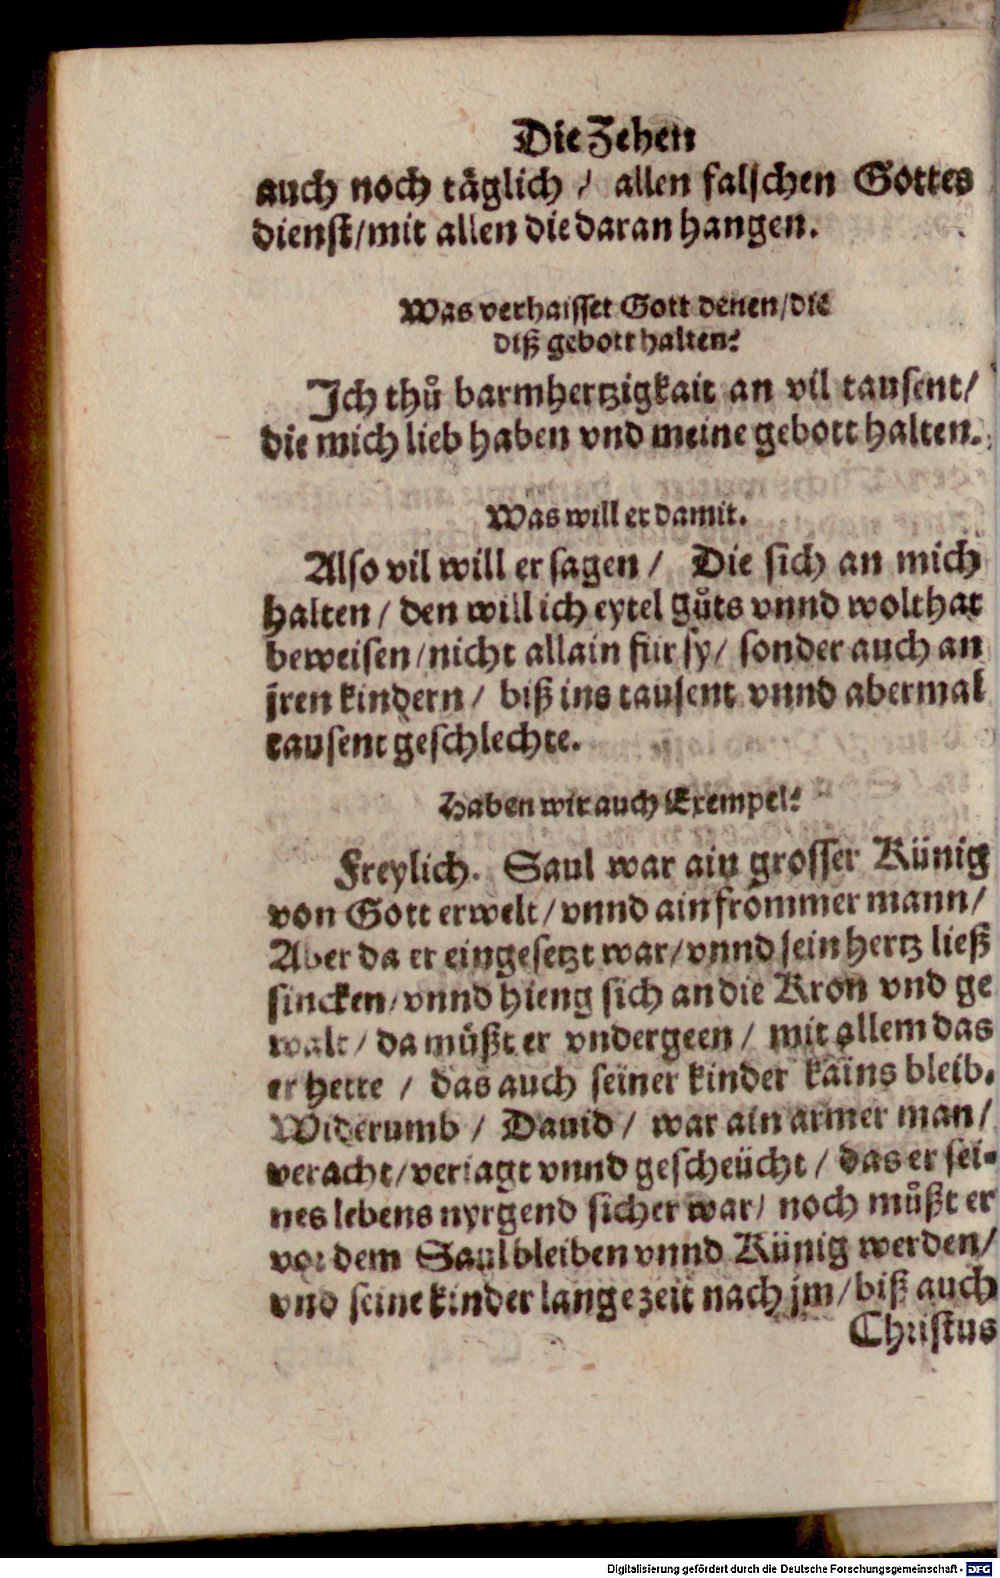 Die Zehen
auch noch täglich / allen falschen Gottes
dienst/mit allen die daran hangen.
Was verhaisset Gott denen/die
diß gebott halten?
Ich thů barmhertzigkait an vil tausent/
die mich lieb haben vnd meine gebott halten.
Was will er damit.
Also vil will er sagen / Die sich an mich
halten / den will ich eytel gůts vnnd wolthat
beweisen/nicht allain für sy/ sonder auch an
jren kindern / biß ins tausent vnnd abermal
tausent geschlechte.
Haben wir auch Exempel?
Freylich. Saul war ain grosser Künig
von Gott erwelt/vnnd ain frommer mann/
Aber da er eingesetzt war/vnnd sein hertz ließ
sincken/vnnd hieng sich an die Kron vnd ge
walt / da můßt er vndergeen / mit allem das
er hette / das auch seiner kinder kains bleib.
Widerumb / Dauid / war ain armer man/
veracht/veriagt vnnd gescheücht / das er sei-
nes lebens nyrgend sicher war/ noch můßt er
vor dem Saul bleiben vnnd Künig werden/
vnd seine kinder lange zeit nach jm/biß auch
Christus
Digitalisierung gefördert durch die Deutsche Forschungsgemeinschaft - DFG